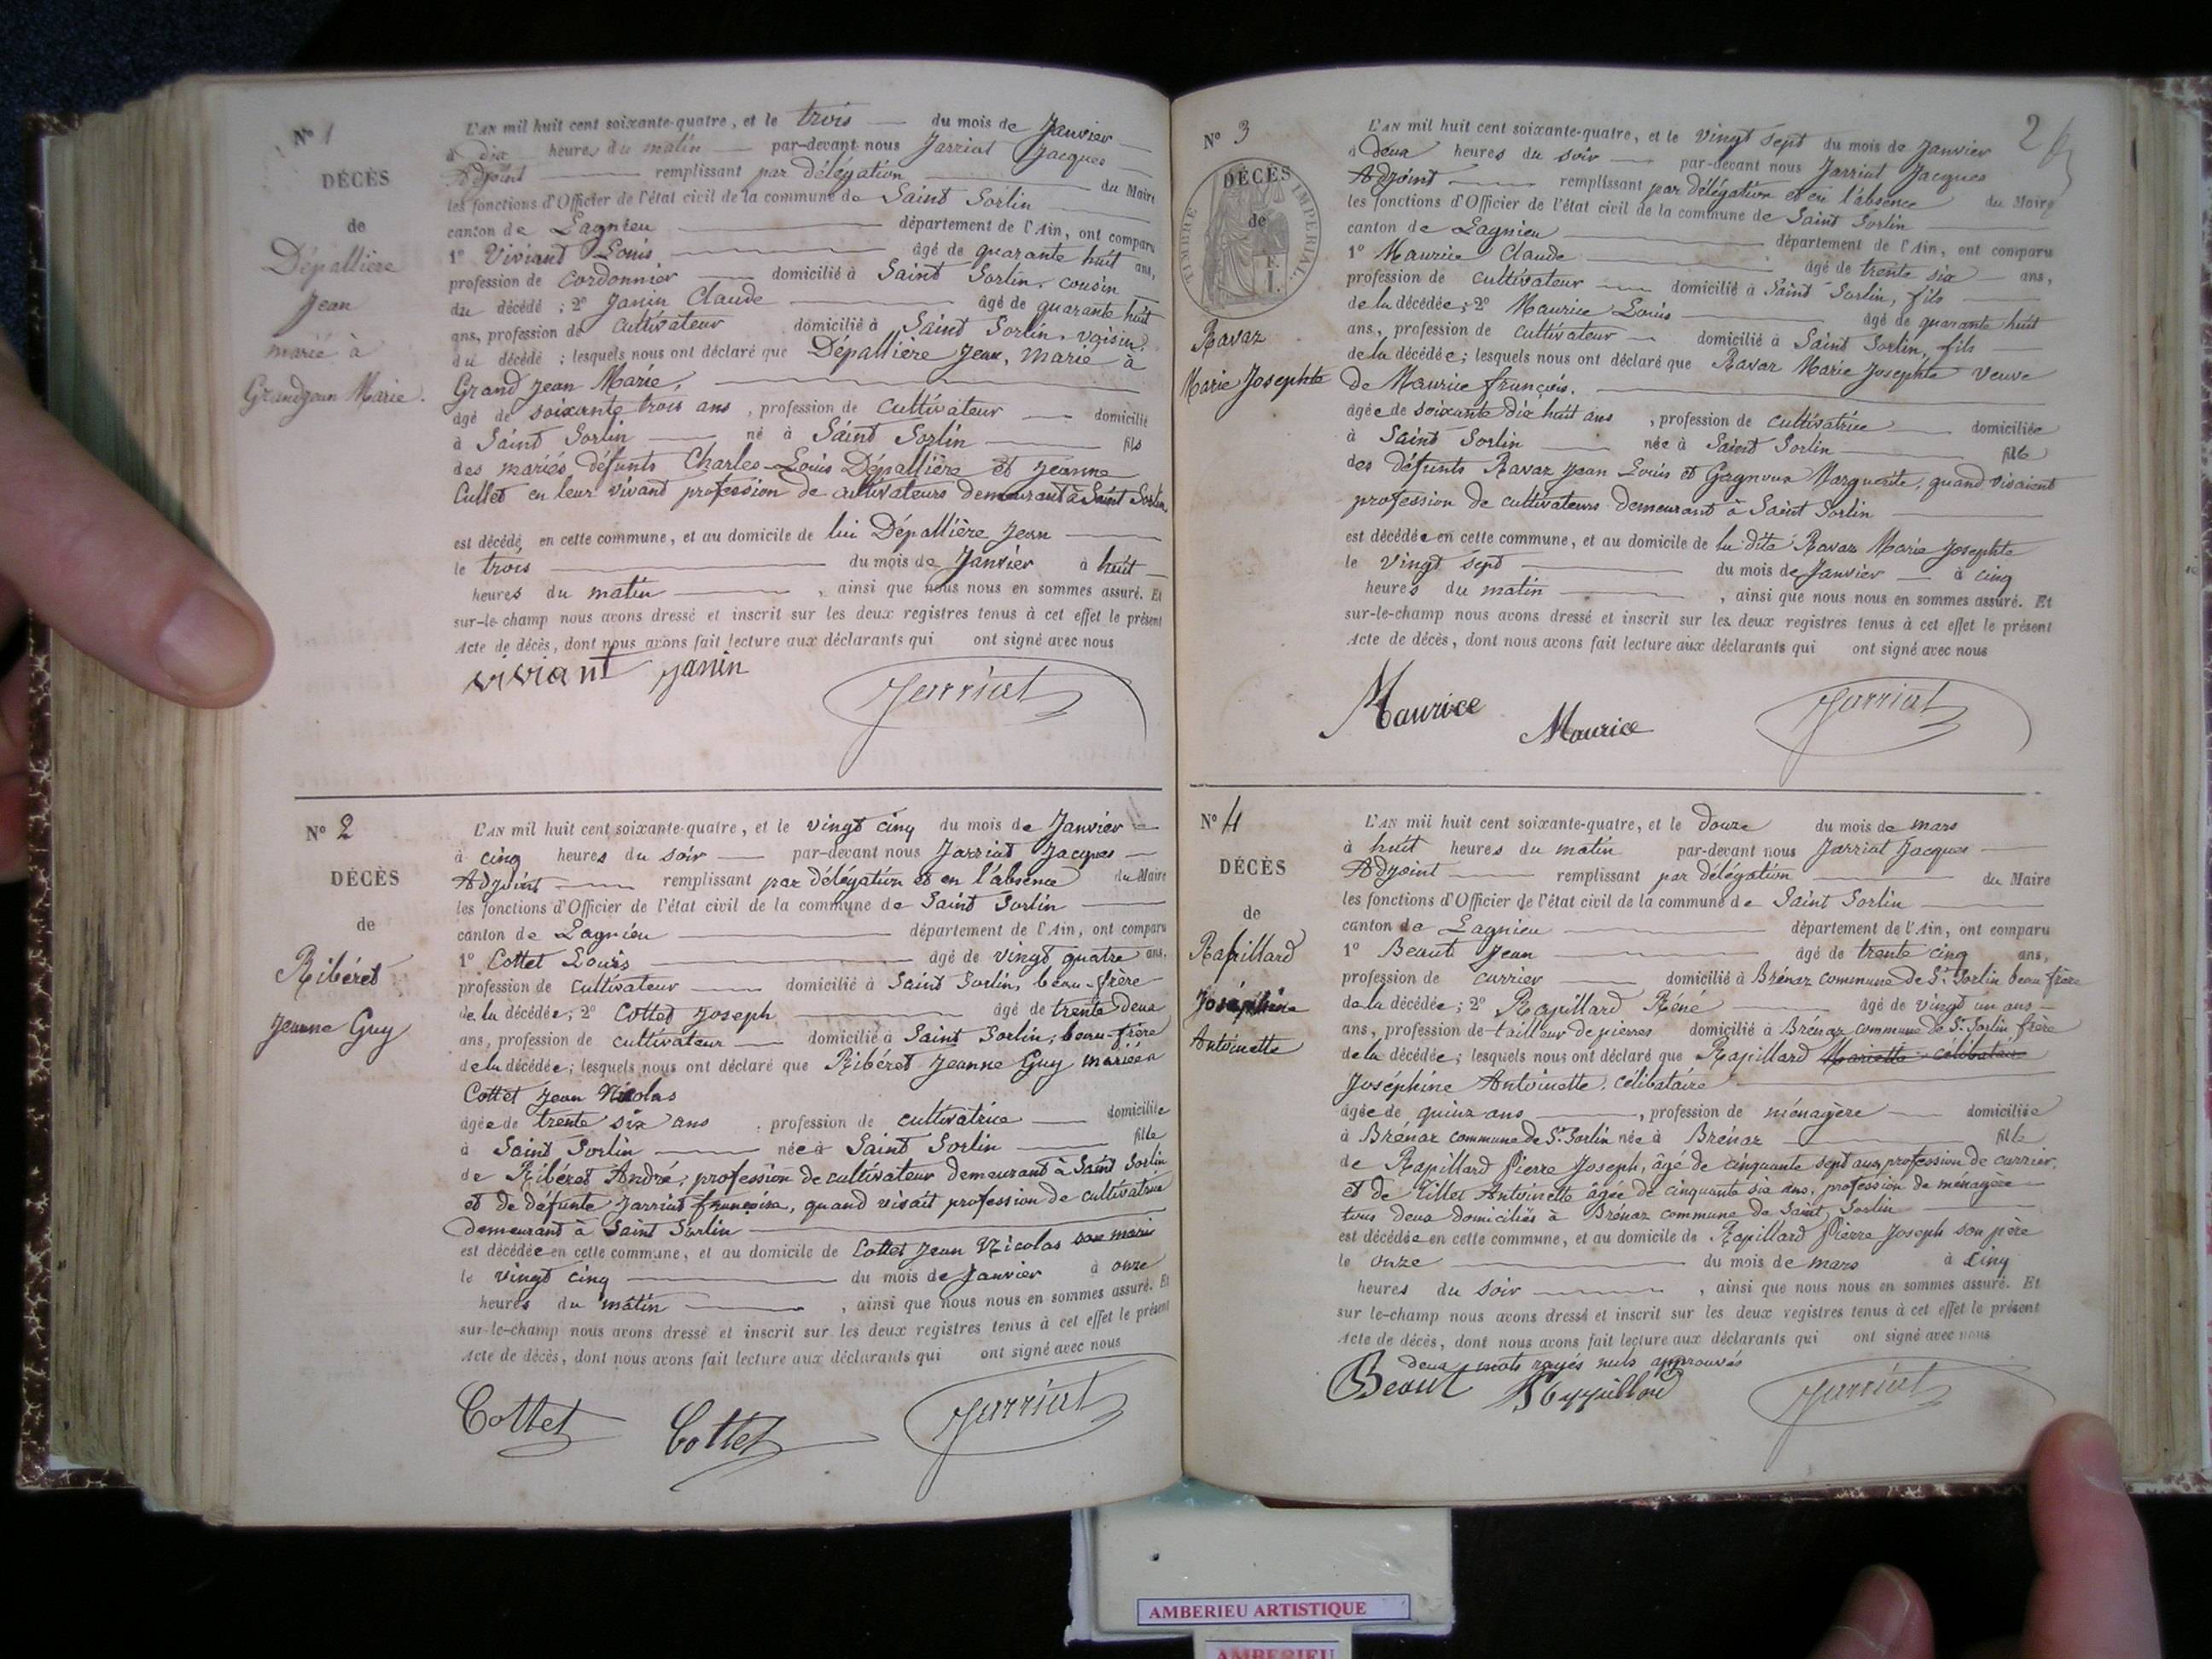 N° 1
DÉCÈS
de
Dépallière
Jean
marié à
Grandjean Marie.
L'AN mil huit cent soixante-quatre, et le trois du mois de Janvier
à dix heures du matin par-devant nous Jarriat Jacques
Adjoint remplissant par délégation du Maire
les fonctions d'Officier de l'état civil de la commune de Saint Sorlin
canton de Lagnieu département de l'Ain, ont comparu
1° Viviant Louis âgé de quarante huit ans,
profession de Cordonnier domicilié à Saint Sorlin, cousin
du décédé ; 2° Janin Claude âgé de quarante huit
ans, profession de cultivateur domicilié à Saint Sorlin, voisin
du décédé ; lesquels nous ont déclaré que Dépallière Jean, marié à
Grand Jean Marie,
âgé de soixante trois ans , profession de cultivateur domicilié
à Saint Sorlin né à Saint Sorlin fils
des mariés défunts Charles-Louis Dépallière et Jeanne
Cullet en leur vivant profession de cultivateurs demeurant à Saint Sorlin
est décédé en cette commune, et au domicile de lui Dépallière Jean
le trois du mois de Janvier à huit
heures du matin , ainsi que nous nous en sommes assuré. Et
sur-le-champ nous avons dressé et inscrit sur les deux registres tenus à cet effet le présent
Acte de décès, dont nous avons fait lecture aux déclarants qui ont signé avec nous
viviant Janin Jarriat
N° 2
DÉCÈS
de
Ribéret
Jeanne Guy
L'AN mil huit cent soixante-quatre, et le vingt cinq du mois de Janvier
à cinq heures du soir par-devant nous Jarriat Jacques
Adjoint remplissant par délégation et en l'absence du Maire
les fonctions d'Officier de l'état civil de la commune de Saint Sorlin
canton de Lagnieu département de l'Ain, ont comparu
1° Cottet Louis âgé de vingt quatre ans,
profession de cultivateur domicilié à Saint Sorlin, beau-frère
de la décédée ; 2° Cottet Joseph âgé de trente deux
ans, profession de cultivateur domicilié à Saint Sorlin, beau-frère
de la décédée ; lesquels nous ont déclaré que Ribéret Jeanne Guy mariée à
Cottet Jean Nicolas
âgée de trente six ans , profession de cultivatrice domiciliée
à Saint Sorlin née à Saint Sorlin fille
de Ribéret André, profession de cultivateur demeurant à Saint Sorlin
et de défunte Jarriat françoise, quand vivait profession de cultivatrice
demeurant à Saint Sorlin
est décédée en cette commune, et au domicile de Cottet Jean Nicolas son mari
le vingt cinq du mois de Janvier à onze
heures du matin , ainsi que nous nous en sommes assuré. Et
sur-le-champ nous avons dressé et inscrit sur les deux registres tenus à cet effet le présent
Acte de décès, dont nous avons fait lecture aux déclarants qui ont signé avec nous
Cottet Cottet Jarriat
2
N° 3
DÉCÈS
de
TIMBRE IMPERIAL.
Ravaz
Marie Josephte
L'AN mil huit cent soixante-quatre, et le vingt sept du mois de Janvier
à deux heures du soir par-devant nous Jarriat Jacques
Adjoint remplissant par délégation et en l'absence du Maire
les fonctions d'Officier de l'état civil de la commune de Saint Sorlin
canton de Lagnieu département de l'Ain, ont comparu
1° Maurice Claude âgé de trente six ans,
profession de cultivateur domicilié à Saint Sorlin, fils
de la décédée ; 2° Maurice Louis âgé de quarante huit
ans, profession de cultivateur domicilié à Saint Sorlin, fils
de la décédée ; lesquels nous ont déclaré que Ravaz Marie Josephte veuve
de Maurice françois.
âgée de soixante dix huit ans , profession de cultivatrice domiciliée
à Saint Sorlin née à Saint Sorlin fille
des défunts Ravaz Jean Louis et Marguerite, quand vivaient
profession de cultivateurs demeurant à Saint Sorlin
est décédée en cette commune, et au domicile de la dite Ravaz Marie Josephte
le vingt sept du mois de Janvier à cinq
heures du matin , ainsi que nous nous en sommes assuré. Et
sur-le-champ nous avons dressé et inscrit sur les deux registres tenus à cet effet le présent
Acte de décès, dont nous avons fait lecture aux déclarants qui ont signé avec nous
Maurice Maurice Jarriat
N° 4
DÉCÈS
de
Rapillard
Joséphine
Antoinette
L'AN mil huit cent soixante-quatre, et le douze du mois de mars
à huit heures du matin par-devant nous Jarriat Jacques
Adjoint remplissant par délégation du Maire
les fonctions d'Officier de l'état civil de la commune de Saint Sorlin
canton de Lagnieu département de l'Ain, ont comparu
1° Beaut Jean âgé de trente cinq ans,
profession de carrier domicilié à Brénaz commune de St. Sorlin beau frère
de la décédée ; 2° Rapillard Réné âgé de vingt un ans
ans, profession de tailleur de pierres domicilié à Brénaz commune de St. Sorlin frère
de la décédée ; lesquels nous ont déclaré que Rapillard Mariette célibataire
Joséphine Antoinette célibataire
âgée de quinz ans , profession de ménagère domiciliée
à Brénaz commune de St. Sorlin née à Brénaz fille
de Rapillard Pierre Joseph, âgé de cinquante sept ans, profession de carrier,
et de Antoinette âgée de cinquante six ans, profession de ménagère
tous deux domiciliés à Brénaz commune de Saint Sorlin
est décédée en cette commune, et au domicile de Rapillard Pierre Joseph son père
le onze du mois de mars à cinq
heures du soir , ainsi que nous nous en sommes assuré. Et
sur le-champ nous avons dressé et inscrit sur les deux registres tenus à cet effet le présent
Acte de décès, dont nous avons fait lecture aux déclarants qui ont signé avec nous
deux mots rayés nuls approuvés
Beaut Jarriat
AMBERIEU ARTISTIQUE
AMBERIEU